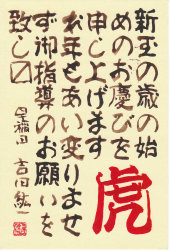 新玉の歳の始
めのお慶びを
申し上げます
本年もあい変りませ
ず御指導のお願いを
致し〼
早稲田 吉田紘一
虎